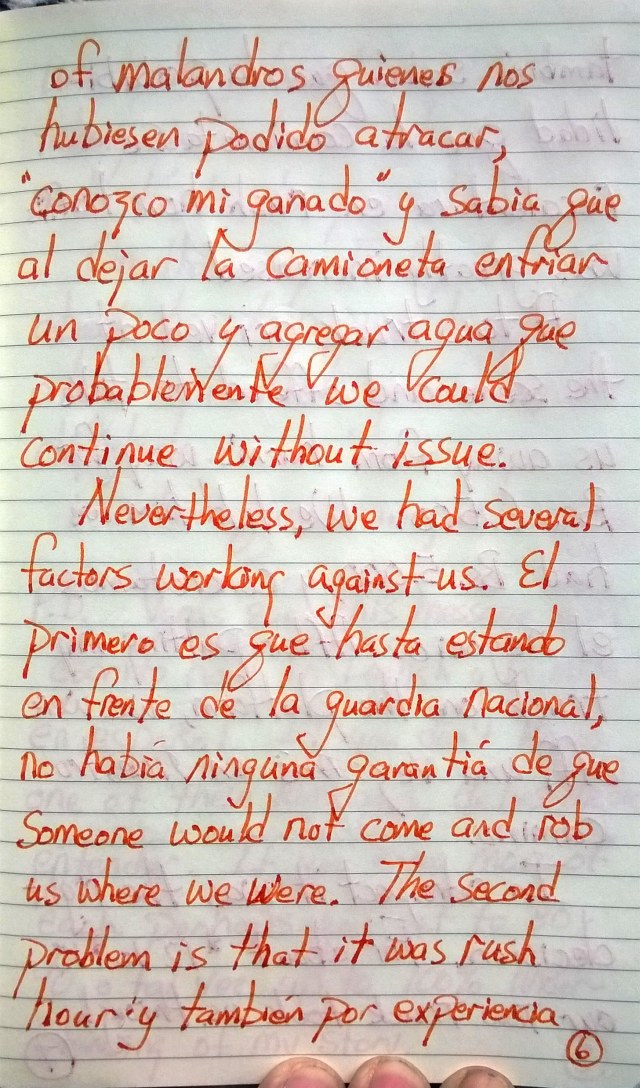 of malandros quienes nos
hubiesen podido atracar,
"conozco mi ganado" y sabia que
al dejar la camioneta enfriar
un poco y agregar agua que
probablemente we could
continue without issue.
Nevertheless, we had several
factors working against us. El
primero es que hasta estando
en frente de la guardia nacional,
no habiá ninguna garantiá de que
someone would not come and rob
us where we were. The second
problem is that it was rush
hour y también por experiencia
6